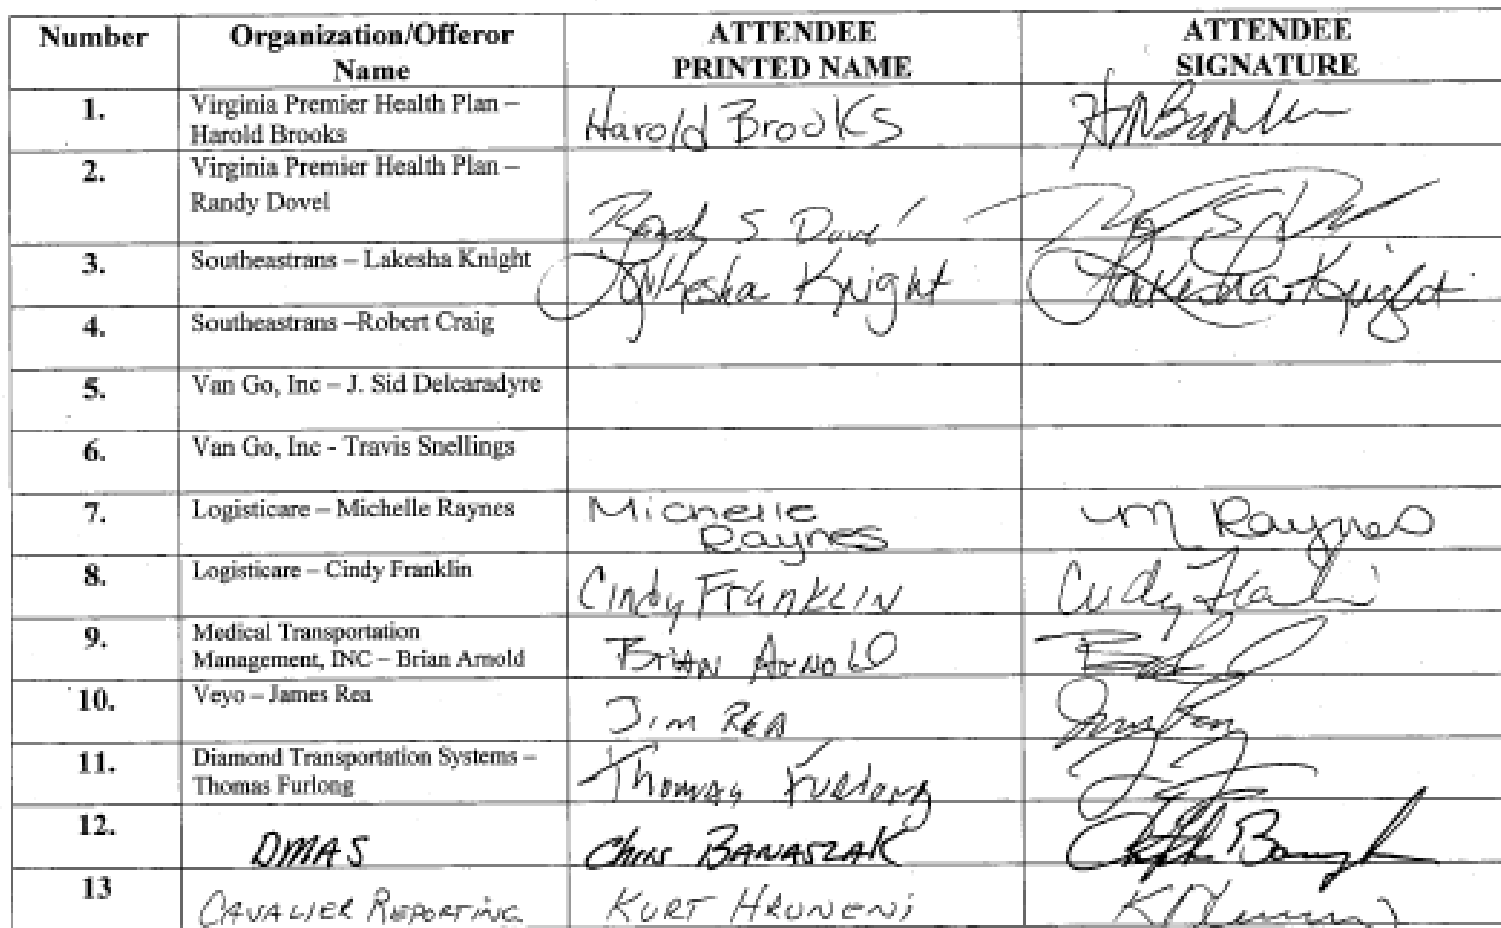 Number Organization/Offeror Name ATTENDEE PRINTED NAME ATTENDEE SIGNATURE
1. Virginia Premier Health Plan – Harold Brooks Harold Brooks
2. Virginia Premier Health Plan – Randy Dovel Randy S. Dovel
3. Southeastrans – Lakesha Knight Lakesha Knight Lakesha Knight
4. Southeastrans –Robert Craig
5. Van Go, Inc – J. Sid Delcaradyre
6. Van Go, Inc - Travis Snellings
7. Logisticare – Michelle Raynes Michelle Raynes M Raynes
8. Logisticare – Cindy Franklin Cindy Franklin Cindy Franklin
9. Medical Transportation Management, INC – Brian Arnold Brian Arnold
10. Veyo – James Rea Jim Rea
11. Diamond Transportation Systems – Thomas Furlong Thomas Furlong
12. DMAS Chris BANASZAK
13 CAVALIER REPORTING KURT HRUNENI